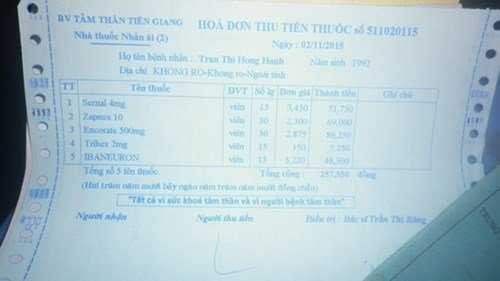 BV TÂM THẦN TIỀN GIANG HOÁ ĐƠN THU TIỀN THUỐC số 511020115
Nhà thuốc Nhân ái (2) Ngày : 02/11/2015
Họ tên bệnh nhân : Tran Thi Hong Hanh Năm sinh 1992
Địa chỉ KHONG RO-Khong ro-Ngoài tỉnh
TT Tên thuốc ĐVT Số lg Đơn giá Thành tiền Ghi chú
1 Sernal 4mg viên 15 3,450 51,750
2 Zapnex 10 viên 30 2,300 69,000
3 Encorate 500mg viên 30 2,875 86,250
4 Trihex 2mg viên 15 150 2,250
5 IBANEURON viên 15 3,220 48,300
Tổng số 5 tên thuốc. Tổng cộng : 257,550 đồng
(Hai trăm năm mươi bảy ngàn năm trăm năm mươi đồng chẵn)
"Tất cả vì sức khoẻ tâm thần và vì người bệnh tâm thần"
Người nhận Người thu tiền Điều trị : Bác sĩ Trần Thị Băng